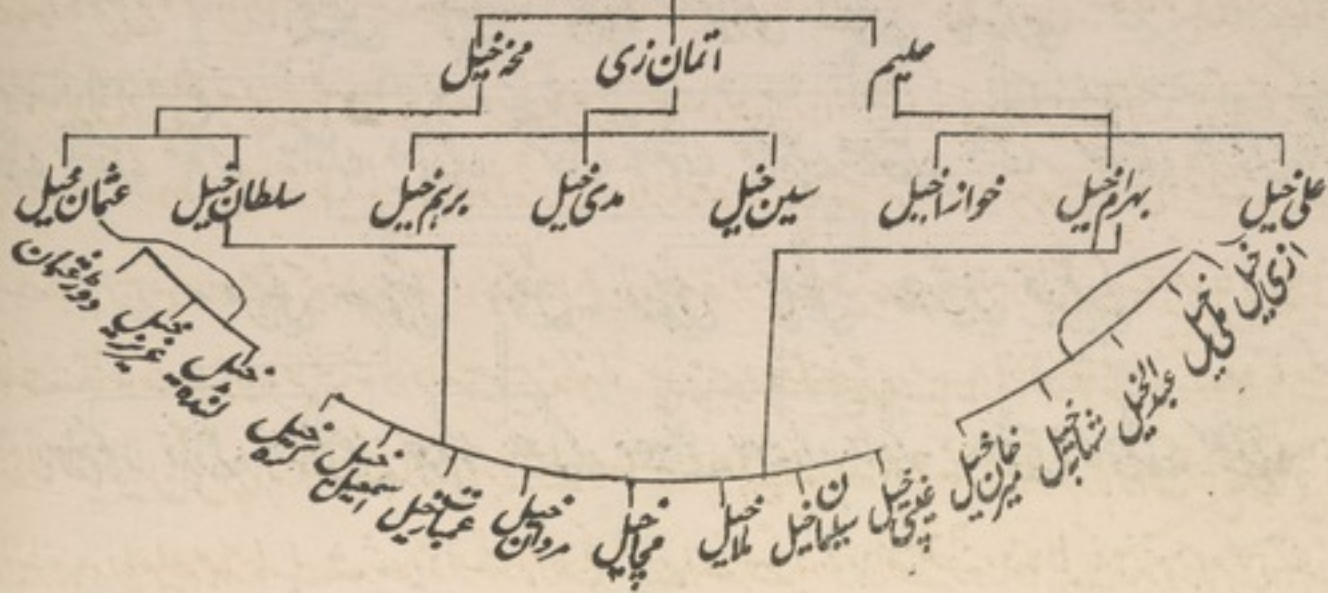 حلیم اتمان زی محمد خیل
علی خیل بهرام خیل خوازا خیل سین خیل مدی خیل برهم خیل سلطان خیل عثمان خیل
ازی خیل
ملی خیل
عبدالخیل
شهاب خیل
میرن خان خیل
غیبی خیل
سلیمان خیل
ملا خیل
مچا خیل
مروان خیل
عباس خیل
اسمعیل خیل
خیل
لنڈه خیل
عزیز خیل